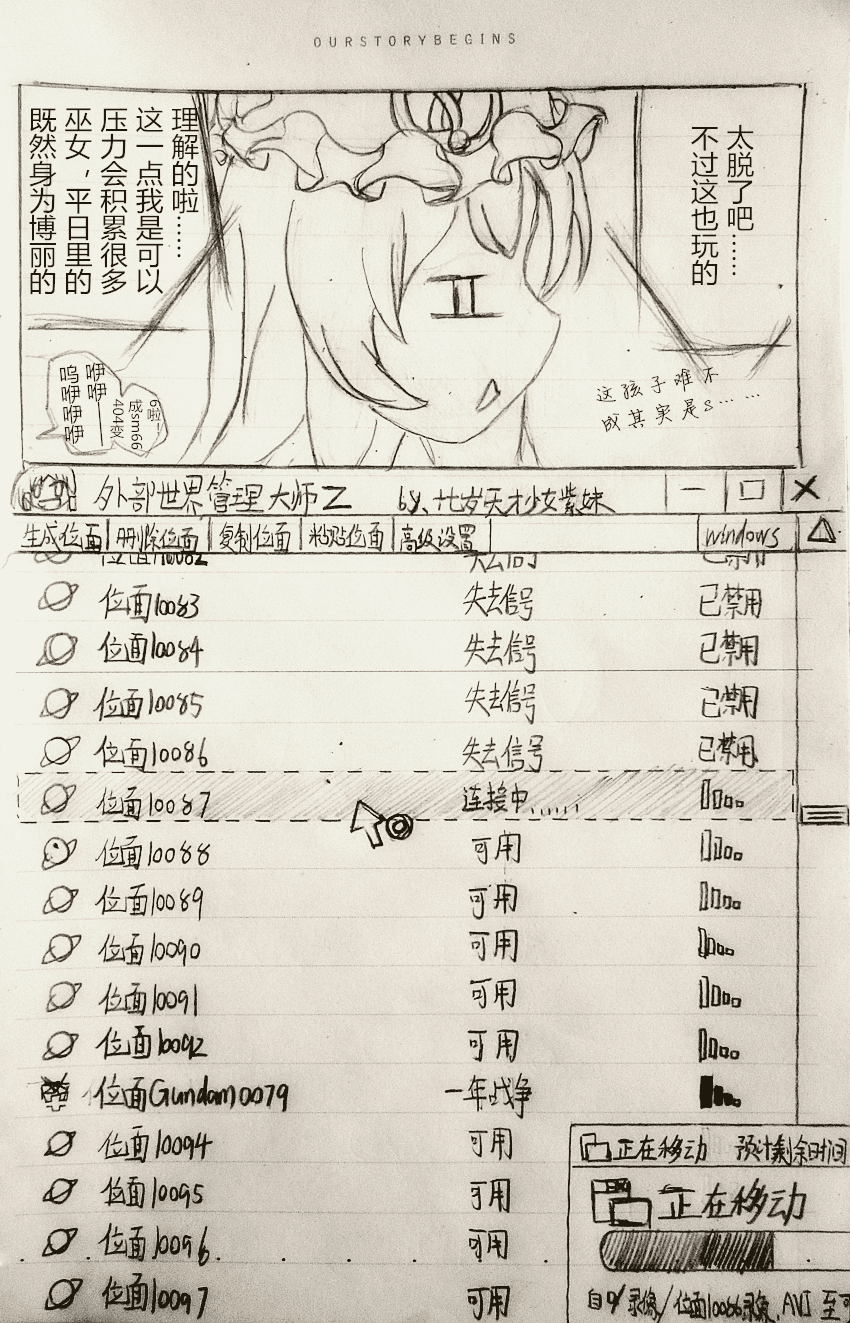 OURSTORYBEGINS
太脱了吧……
不过这也玩的
理解的啦……
这一点我是可以
压力会积累很多
巫女，平日里的
既然身为博丽的
这孩子难不
成其实是S……
6啦—
成sm66
404变
咿咿——
呜咿咿咿
外部世界管理大师Z by、廿七岁天才少女紫妹
生成位面 删除位面 复制位面 粘贴位面 高级设置 windows
位面10082 失去信号 已禁用
位面10083 失去信号 已禁用
位面10084 失去信号 已禁用
位面10085 失去信号 已禁用
位面10086 失去信号 已禁用
位面10087 连接中......
位面10088 可用
位面10089 可用
位面10090 可用
位面10091 可用
位面10092 可用
位面Gundam0079 一年战争
位面10094 可用
位面10095 可用
位面10096 可用
位面10097 可用
正在移动 预计剩余时间
正在移动
录像/位面10086录像.AVI 至